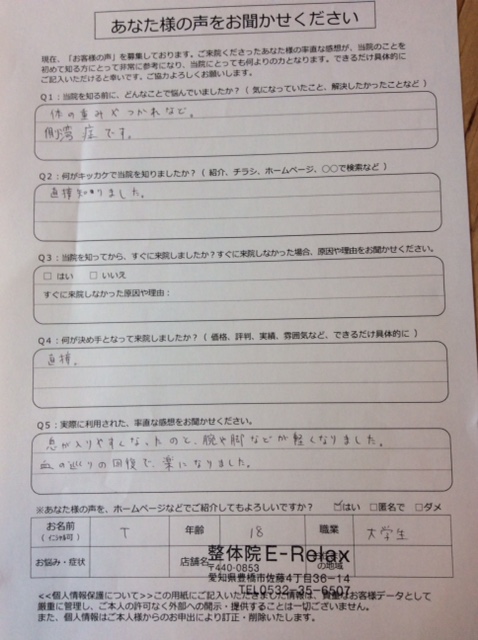 あなた様の声をお聞かせください
現在、「お客様の声」を募集しております。ご来院くださったあなた様の率直な感想が、当院のことを
初めて知る方にとって非常に参考になり、当院にとっても何よりの力となります。できるだけ具体的に
ご記入いただけると幸いです。ご協力よろしくお願いします。
Q1：当院を知る前に、どんなことで悩んでいましたか？（ 気になっていたこと、解決したかったことなど ）
体の重みやつかれなど。
側湾症です。
Q2：何がキッカケで当院を知りましたか？（ 紹介、チラシ、ホームページ、○○で検索など ）
直接知りました。
Q3：当院を知ってから、すぐに来院しましたか？すぐに来院しなかった場合、原因や理由をお聞かせください。
□ はい □ いいえ
すぐに来院しなかった原因や理由：
Q4：何が決め手となって来院しましたか？（ 価格、評判、実績、雰囲気など、できるだけ具体的に ）
直接。
Q5：実際に利用された、率直な感想をお聞かせください。
息が入りやすくなったのと、腕や脚などが軽くなりました。
血の巡りの回復で、楽になりました。
※あなた様の声を、ホームページなどでご紹介してもよろしいですか？ ☑はい □匿名で □ダメ
お名前 T 年齢 18 職業 大学生
（イニシャル可）
お悩み・症状 店舗名 整体院 E-Relax の地域
〒440-0853
愛知県豊橋市佐藤4丁目36-14
TEL0532-35-6507
<<個人情報保護について>> この用紙にご記入いただきました情報は、貴重なお客様データとして
厳重に管理し、ご本人の許可なく外部への開示・提供することは一切ございません。
また、個人情報はご本人様からのお申出により訂正・削除いたします。